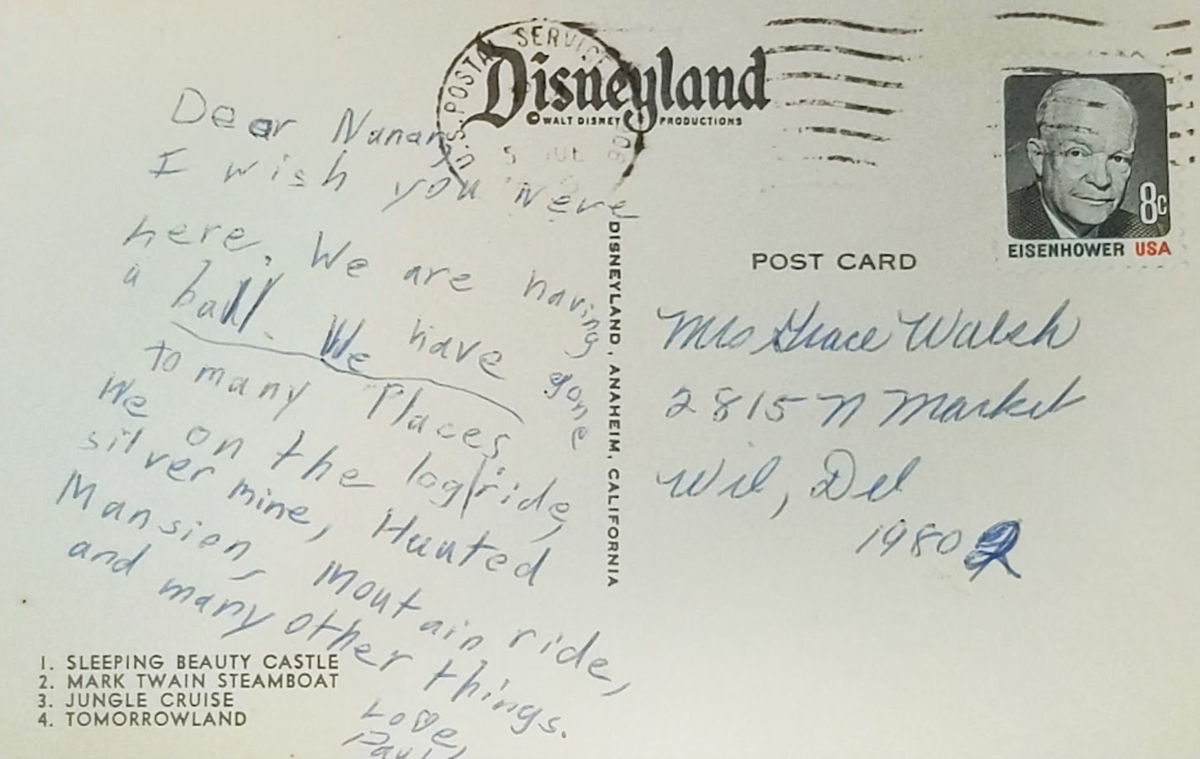 Disneyland
© WALT DISNEY PRODUCTIONS
U.S. POSTAL SERVICE
Dear Nanan,
I wish you were
here. We are having
a ball. We have gone
to many Places
We on the log ride,
silver mine, Hauted
Mansion, Moutain ride,
and many other things.
Love,
Paul
1. SLEEPING BEAUTY CASTLE
2. MARK TWAIN STEAMBOAT
3. JUNGLE CRUISE
4. TOMORROWLAND
DISNEYLAND, ANAHEIM, CALIFORNIA
8c
EISENHOWER USA
POST CARD
Mrs Grace Walsh
2815 N Market
Wil, Del
19802